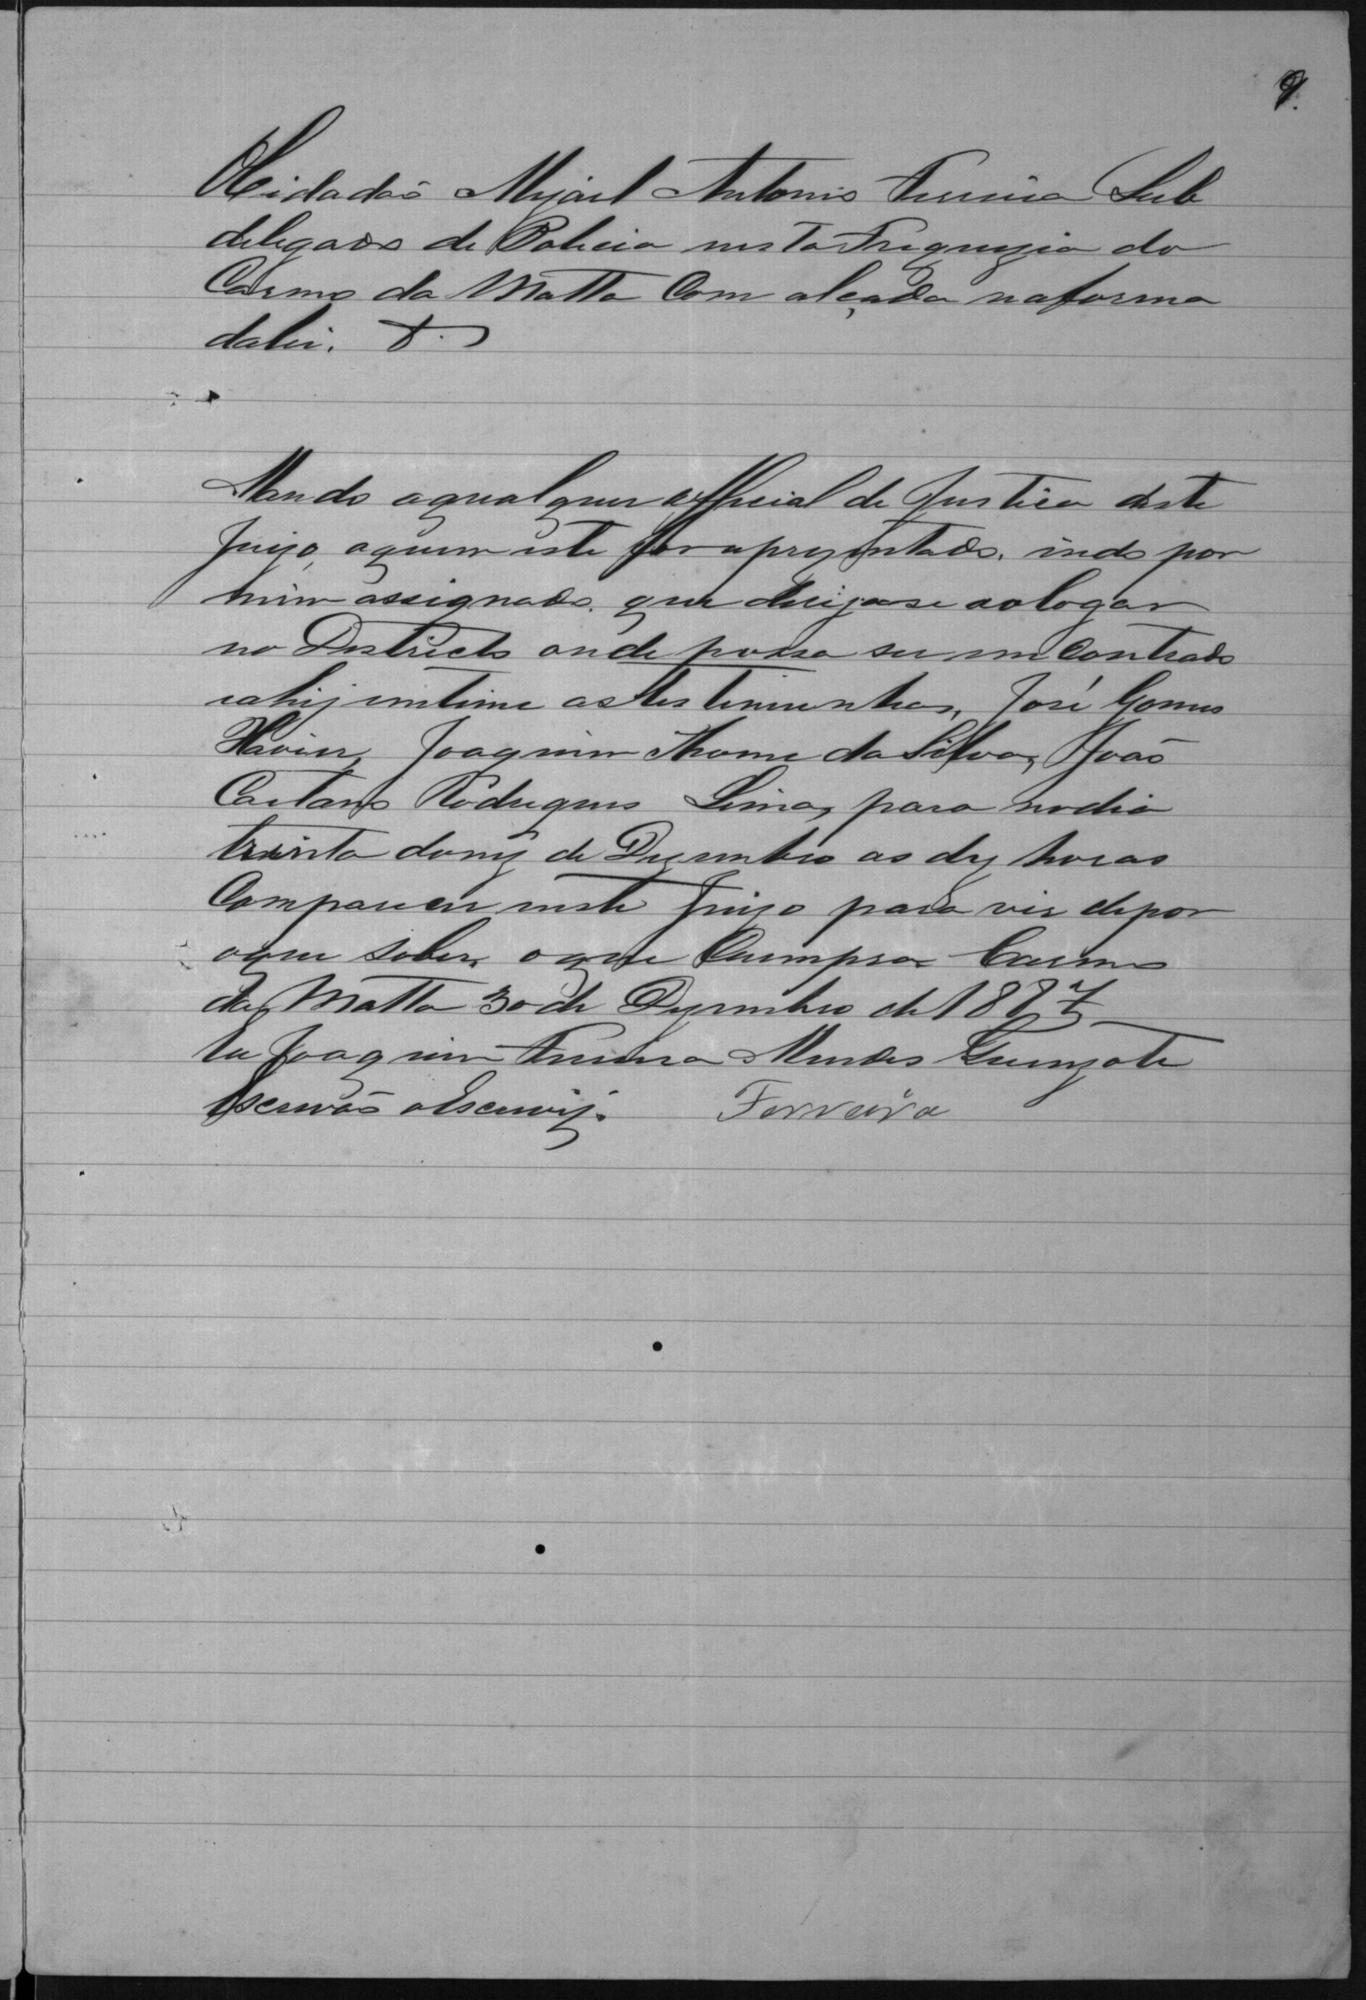 9.
O Cidadão Mizael Antonio Ferreira Sub
delegado de Policia nesta Freguezia do
Carmo da Matta Com alçada naforma
dalei. &.
Mando aqualquer official de Justica deste
Juizo, aquem este for aprezentado, indo por
mim assignado, que dirijase aologar
no Destricto onde possa ser emContrado
eahij intime astestimunhas, José Gomes
Xavier, Joaquim Thome da Silva, João
Caetano Rodrigues Lima, para nodia
trinta domz de Dezembro as dez horas
Comparecer neste Juizo para vir depor
oque sober, o que Cumpra Carmo
da Matta 30 de Dezembro de 1887
Eu Joaquim Ferreira Mendes
Escrivão oEscrevij. Ferreira